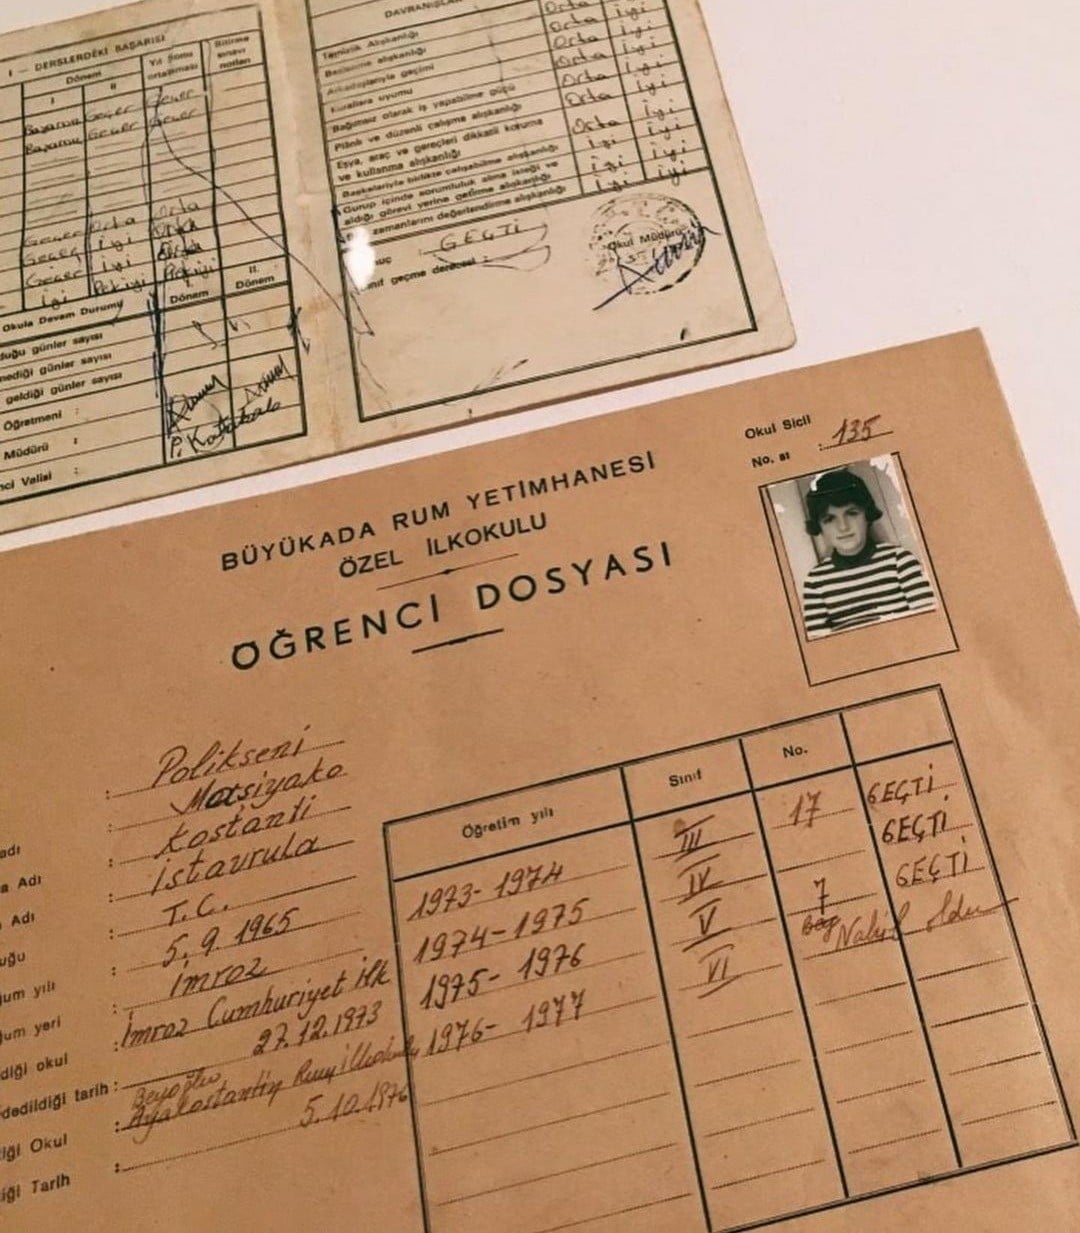 I — DERSLERDEKİ BAŞARISI
Dönem
Yıl Sonu
ortalaması
Bitirme
sınavı
notları
I
II
Geçer Geçer
Geçer Geçer
Geçer Orta Orta
Geçer İyi Orta
Geçer İyi Orta
İyi Pekiyi Pekiyi
Okula Devam Durumu
I
Dönem
II.
Dönem
duğu günler sayısı
mediği günler sayısı
geldiği günler sayısı
Öğretmeni :
Müdürü :
nci Velisi :
DAVRANIŞLAR
Temizlik Alışkanlığı
Beslenme alışkanlığı
Arkadaşlarıyla geçimi
Kurallara uyumu
Bağımsız olarak iş yapabilme gücü
Plânlı ve düzenli çalışma alışkanlığı
Eşya, araç ve gereçleri dikkatli koruma
ve kullanma alışkanlığı
Başkalariyle birlikte çalışabilme alışkanlığı
Gurup içinde sorumluluk alma isteği ve
aldığı görevi yerine getirme alışkanlığı
zamanlarını değerlendirme alışkanlığı
Orta İyi
Orta İyi
Orta İyi
Orta İyi
Orta İyi
Orta İyi
İyi İyi
İyi İyi
İyi İyi
uç : GEÇTİ
nıf geçme derecesi :
Okul Müdürü
BÜYÜKADA RUM YETİMHANESİ
ÖZEL İLKOKULU
ÖĞRENCİ DOSYASI
Okul Sicil
No. sı : 135
: Polikseni
adı : Matsiyako
a Adı : Kostanti
Adı : İstavrula
uğu : T.C.
ğum yılı : 5.9.1965
ğum yeri : İmroz
diği okul : İmroz Cumhuriyet İlk
dedildiği tarih : 27.12.1973
iği Okul : Beyoğlu
Ayakostantin Rum İlkokulu
iği Tarih : 5.10.1976
Öğretim yılı Sınıf No.
1973-1974 III 17 GEÇTİ
1974-1975 IV GEÇTİ
1975-1976 V 7 GEÇTİ
1976-1977 VI Nakil oldu